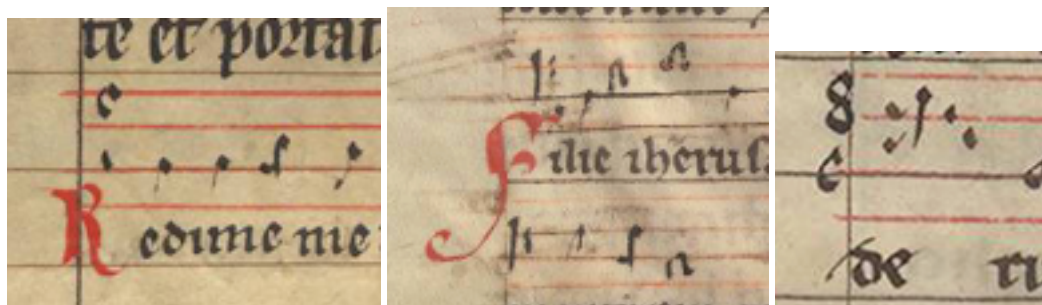 te et portat
Redime me
Filie iherusa
de ti